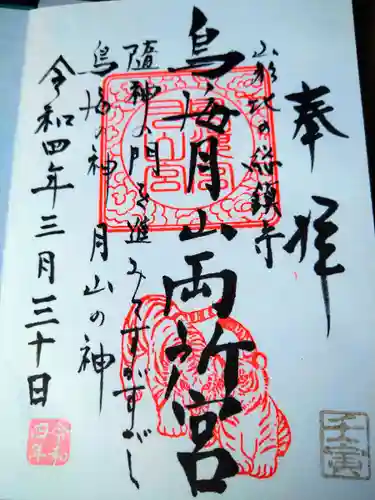 奉拝
山形北の総鎮守
鳥海月山両所宮
随神の門を進みてすがすがし
鳥海の神 月山の神
令和四年三月三十日
壬寅
令和
四年